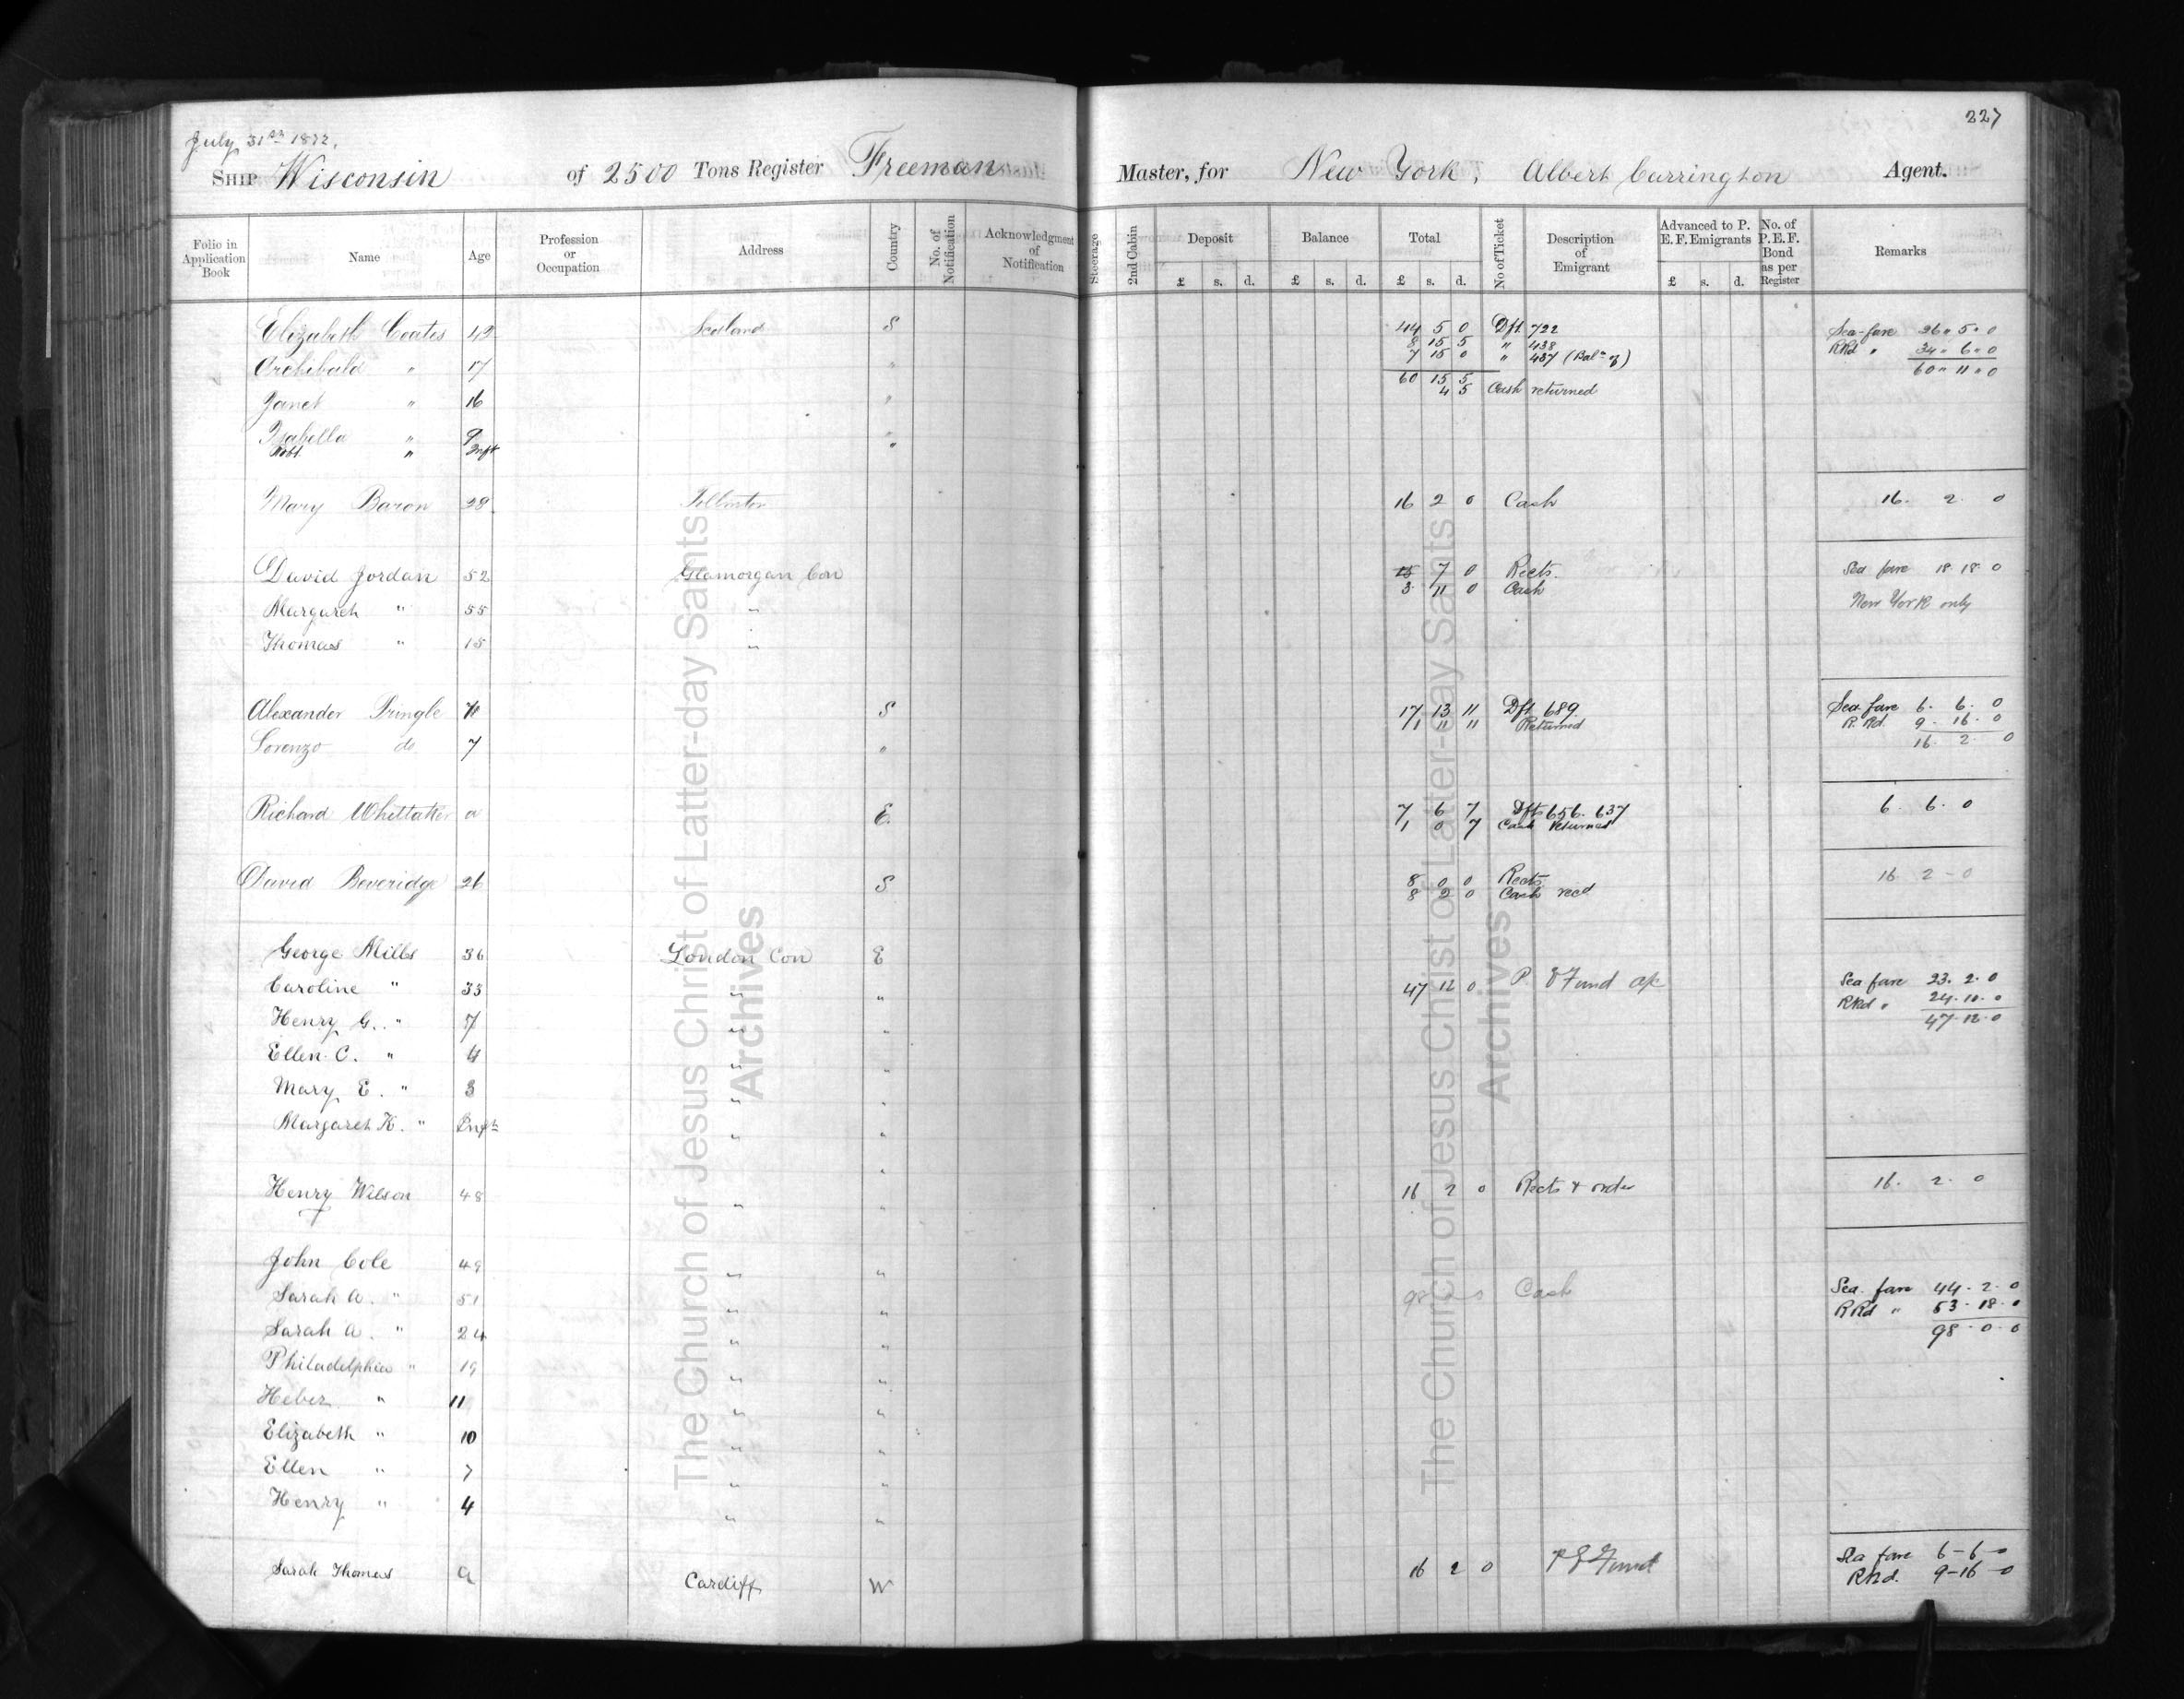 227
July 31st 1872.
Ship Wisconsin of 2500 Tons Register Freeman Master, for New York, Albert Carrington Agent.
Folio in Application Book | Name | Age | Profession or Occupation | Address | Country | No. of Notification | Acknowledgment of Notification | Steerage | 2nd Cabin | Deposit £ s. d. | Balance £ s. d. | Total £ s. d. | No of Ticket | Description of Emigrant | Advanced to P. E. F. Emigrants £ s. d. | No. of P. E. F. Bond as per Register | Remarks
Elizabeth Coates 42 Scotland S 44 5 0 Dft 722 Sea-fare 26 " 5 " 0
8 15 5 " 438 RRd " 34 " 6 " 0
Archibald " 17 " 7 15 0 " 437 (Balce of) 60 " 11 " 0
60 15 5
Janet " 16 " 4 5 Cash returned
Isabella " 9 "
Robt " Inft "
Mary Baron 28 16 2 0 Cash 16. 2. 0
David Jordan 52 Glamorgan Con 15 7 0 Rects. Sea fare 18 18 0
3 11 0 Cash
Margaret " 55 " New York only
Thomas " 15 "
Alexander Pringle S 17 13 11 Dft 689 Sea fare 6. 6. 0
1 11 11 Returned R. Rd. 9. 16. 0
Lorenzo do 7 " 16. 2. 0
Richard Whittaker a E. 7 6 7 Dfts 656. 637 6. 6. 0
1 0 7 Cash returned
David Beveridge 26 S 8 0 0 Rects 16 2 - 0
8 2 0 Cash recd
George Mills 36 London Con E
Caroline " 33 " " 47 12 0 P E Fund a/c Sea fare 23. 2. 0
RRd " 24. 10. 0
Henry G. " 7 " " 47. 12. 0
Ellen C. " 4 " "
Mary E. " 3 " "
Margaret K. " Inft " "
"
Henry Wilson 48 " " 16 2 0 Rects & order 16. 2. 0
John Cole 49 " "
Sarah A. " 51 " " 98 Cash Sea. fare 44. 2. 0
RRd " 53. 18. 0
Sarah A. " 24 " " 98. 0. 0
Philadelphia " 19 " "
Heber " 11 " "
Elizabeth " 10 " "
Ellen " 7 " "
Henry " 4 " "
Sarah Thomas a Cardiff W 16 2 0 P E Fund Sea fare 6 - 6 - 0
RRd. 9 - 16 - 0
The Church of Jesus Christ of Latter-day Saints
Archives
The Church of Jesus Christ of Latter-day Saints
Archives